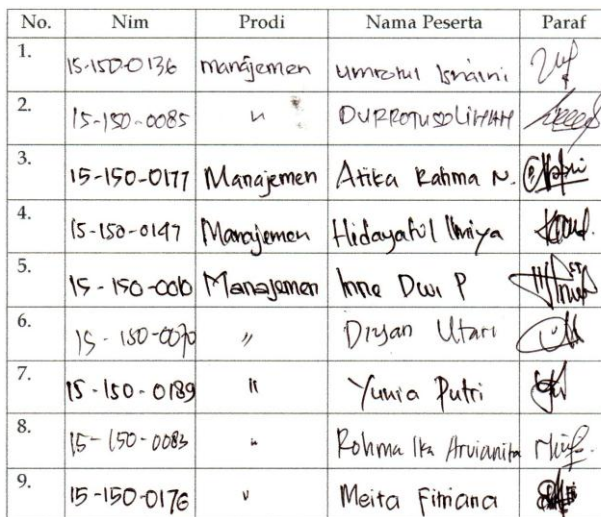 No. Nim Prodi Nama Peserta Paraf
1. 15-150-0136 manajemen umrotul Isnaini
2. 15-150-0085 " DURROTUSOLIHAH
3. 15-150-0177 Manajemen Atika Rahma N.
4. 15-150-0147 Manajemen Hidayatul Ilmiya
5. 15-150-0010 Manajemen Inne Dwi P
6. 15-150-0070 " Diyan Utari
7. 15-150-0189 " Yunia Putri
8. 15-150-0083 " Rohma Ika Arvianita
9. 15-150-0176 " Meita Fitriana